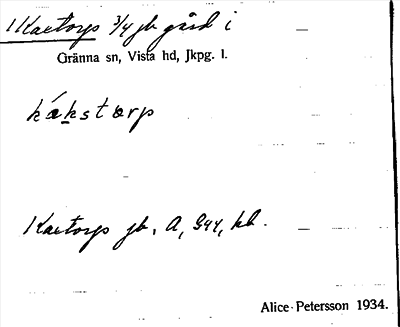 Kaxtorp 3/4 jb gård i
Gränna sn, Vista hd, Jkpg. l.
kákstorp
Kaxtorp jb, A, G44, kb.
Alice Petersson 1934.